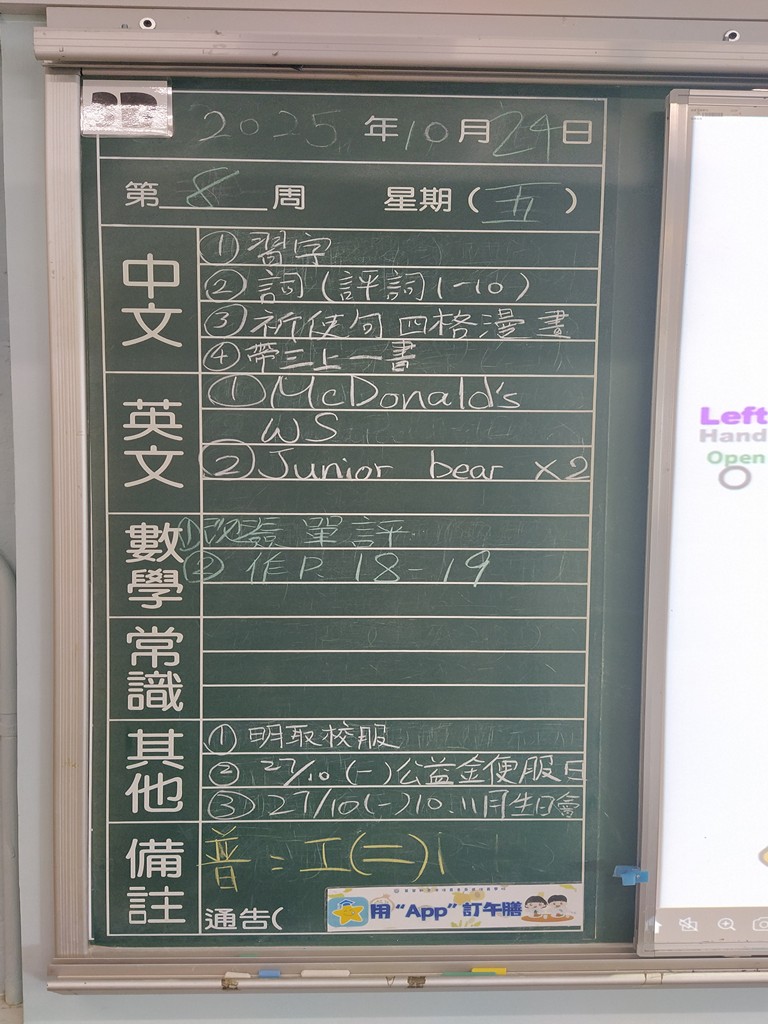 2025年10月24日
第8周 星期(五)
中文
①習字
②詞(評詞1-10)
③祈使句四格漫畫
④帶三上一書
英文
①McDonald's
WS
②Junior bear x2
數學
①改簽單評
②作P. 18-19
常識
其他
①明取校服
②27/10(一)公益金便服日
③27/10(一)10.11月生日會
備註
普:工(二)
通告(
用“App”訂午膳
Left
Hand
Open